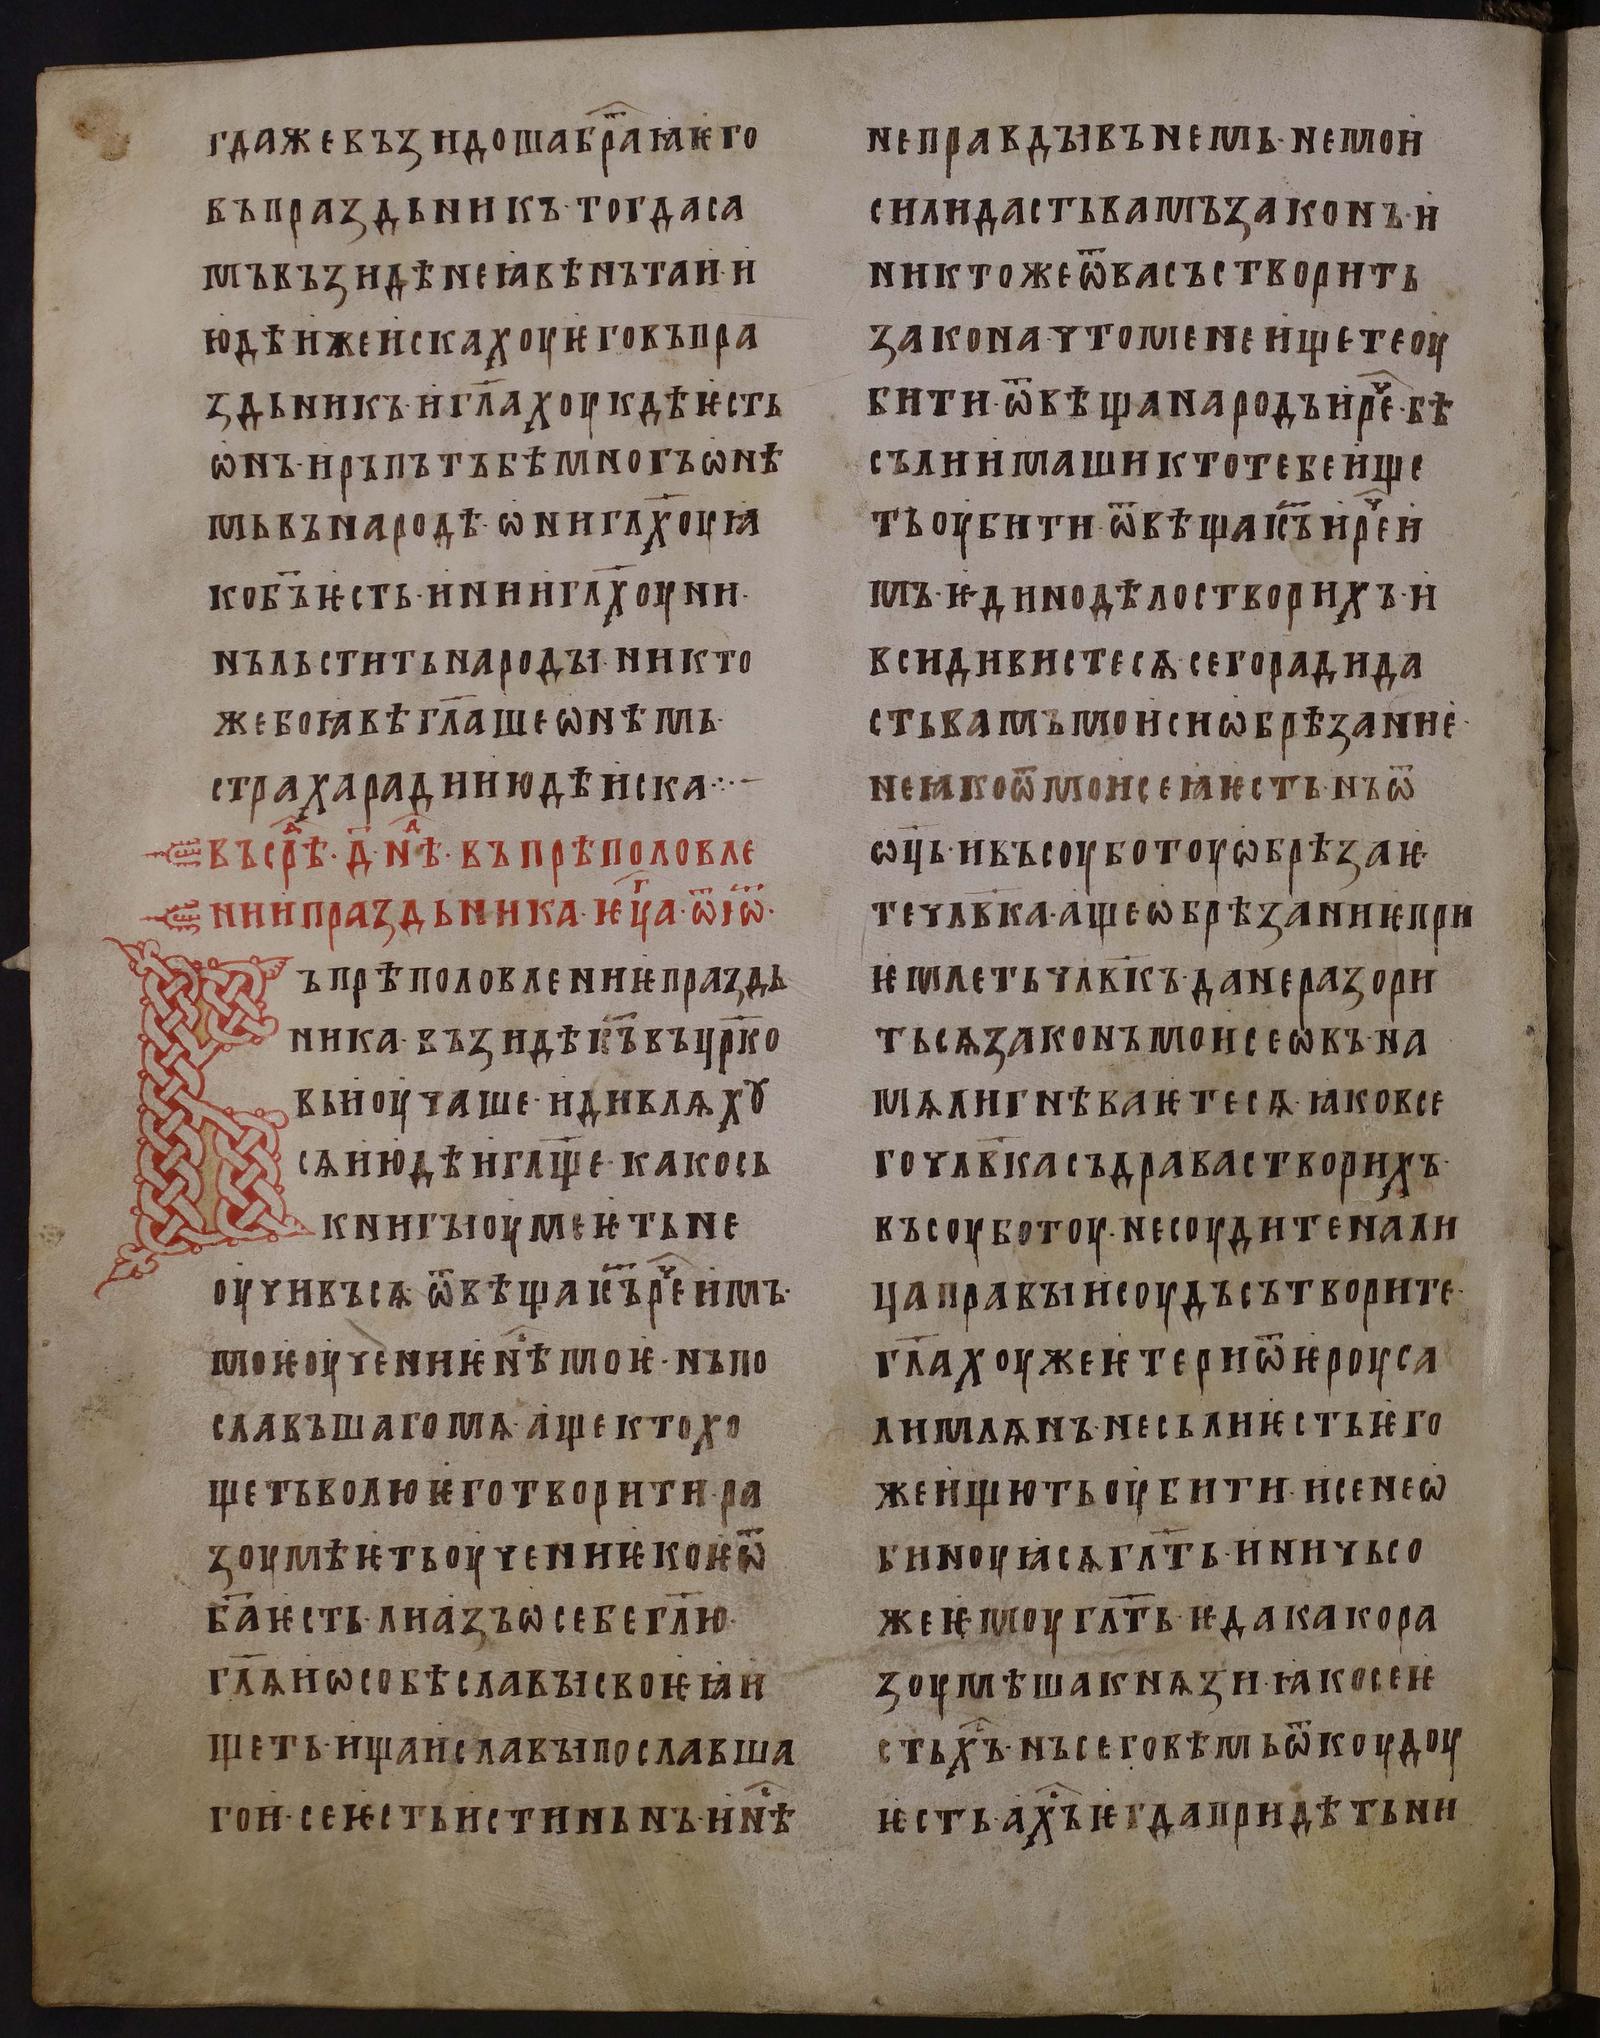 гдажевъзидошабра҃ꙗѥго
въпраздьникъ·тогдаса
мъвъзидѣнеꙗвѣнътаи·и
юдѣижеискахоуѥговъпра
здьникъ·игл҃ахоукдѣѥсть
ѡнъ·иръпътъбѣмногъѡнѣ
мьвънародѣ·ѡниглх҃оуꙗ
кобъ҃ѥсть·иниииглх҃оуни·
нъльститьнароды·никто
жебоꙗвѣгл҃ашеѡнѣмь·
страхарадииюдѣиска·:·–
въср҃ѣ·д҃·н҃ѣ·въпрѣполовле
ниипраздьника·ѥуⷢ҇а·ѿіѡ҃·
Въпрѣполовлениѥпраздь
ника·възидѣіс҃ъвъцрк҃о
вьиоучаше·идивлѧхꙋ
сѧиюдѣиглщ҃е·какось
книгыоумеѥтьне
оучивъсѧ·ѿвѣщаіс҃ъреⷱ҇имъ·
моѥоучениѥнⷭ҇ѣмоѥ·нъпо
славъшагомѧ·ащектохо
щетьволюѥготворити·ра
зоумѣѥтьоучениѥкоѥѿ
ба҃ѥсть·лиазъѡсебегл҃ю·
гл҃ѧиѡсобѣславысвоѥꙗи
щеть·ищаиславыпославша
гои·сеѥстьистиньнъ·инⷭ҇ѣ
неправдывънемь·немои
силидастьвамъзаконъ·и
никтожеѿвасъстворить
закона·чтоменеищетеоу
бити·ѿвѣщанародъиреⷱ҇·бѣ
сълиимашиктотебеище
тьоубити·ѿвѣщаіс҃ъиреⷱ҇и
мъ·ѥдинодѣлостворихъ·и
всидивистесѧ·сегорадида
стьвамъмоисиѡбрѣзание·
неꙗкоѿмоисеꙗѥсть·нъѿ
ѡць҃·ивъсоуботоуѡбрѣзаѥ
течлвк҃а·ащеѡбрѣзаниѥпри
ѥмлетьчлвк҃ъ·данеразори
тьсѧзаконъмоисеѡвъ·на
мѧлигнѣваѥтесѧ·ꙗковсе
гочлвк҃асъдравастворихъ·
въсоуботоу·несоудитеналИ
цаправыисоудъсътворите·
гл҃ахоужеѥтериѿѥроуса
лимлѧнъ·несьлиѥстьѥго
жеищютьоубити·исенеѡ
биноуꙗсѧглт҃ь·иничьсо
жеѥмоуглт҃ь·ѥдакакора
зоумѣшакнѧзи·ꙗкосеѥ
стьх҃ъ·нъсеговѣмьѿкоудоу
ѥсть·ах҃ъѥгдапридѣтьни